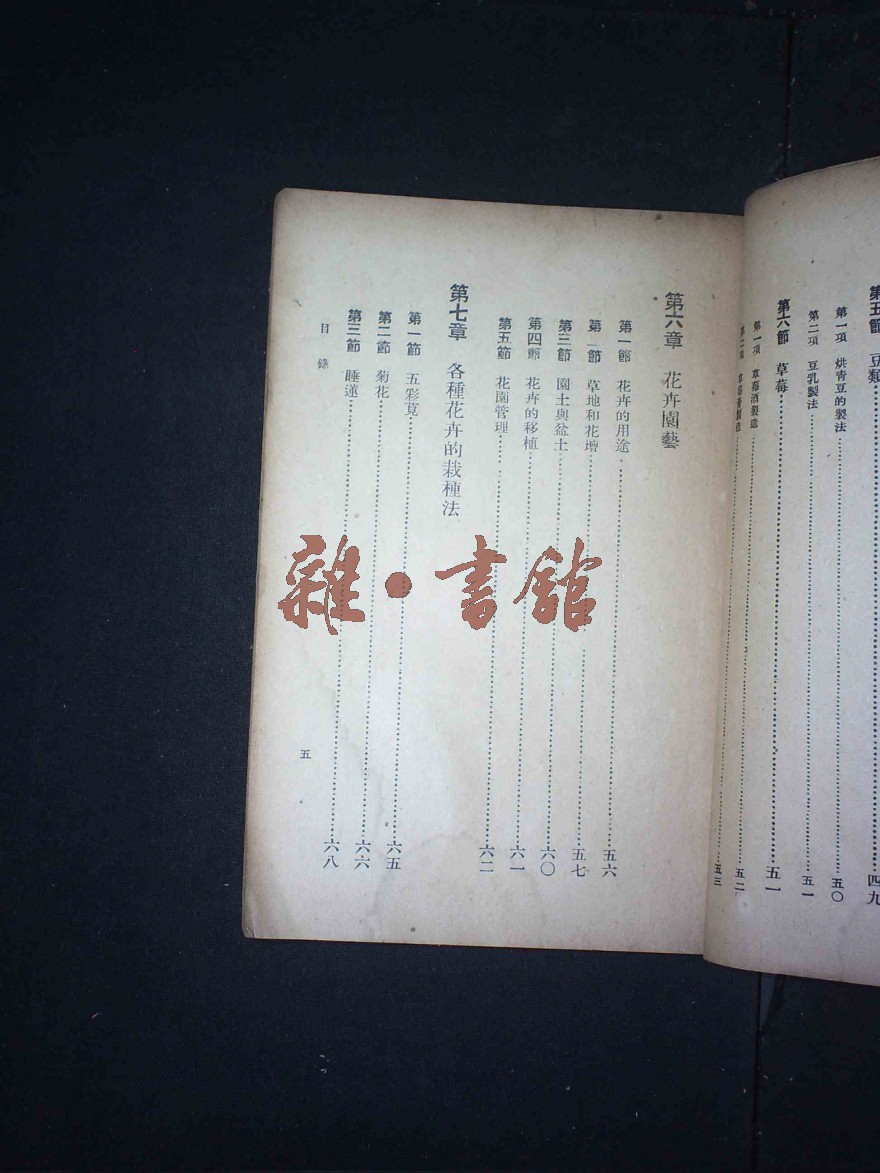 第五節 豆類 四九
第一項 烘青豆的製法 五〇
第二項 豆乳製法 五一
第六節 草莓 五一
第一項 草莓酒製造 五二
第二項 草莓醬製造 五三
第六章 花卉園藝
第一節 花卉的用途 五六
第二節 草地和花壇 五七
第三節 園土與盆土 六〇
第四節 花卉的移植 六一
第五節 花園管理 六二
第七章 各種花卉的栽種法
第一節 五彩莧 六五
第二節 菊花 六六
第三節 睡蓮 六八
目錄 五
雜·書館